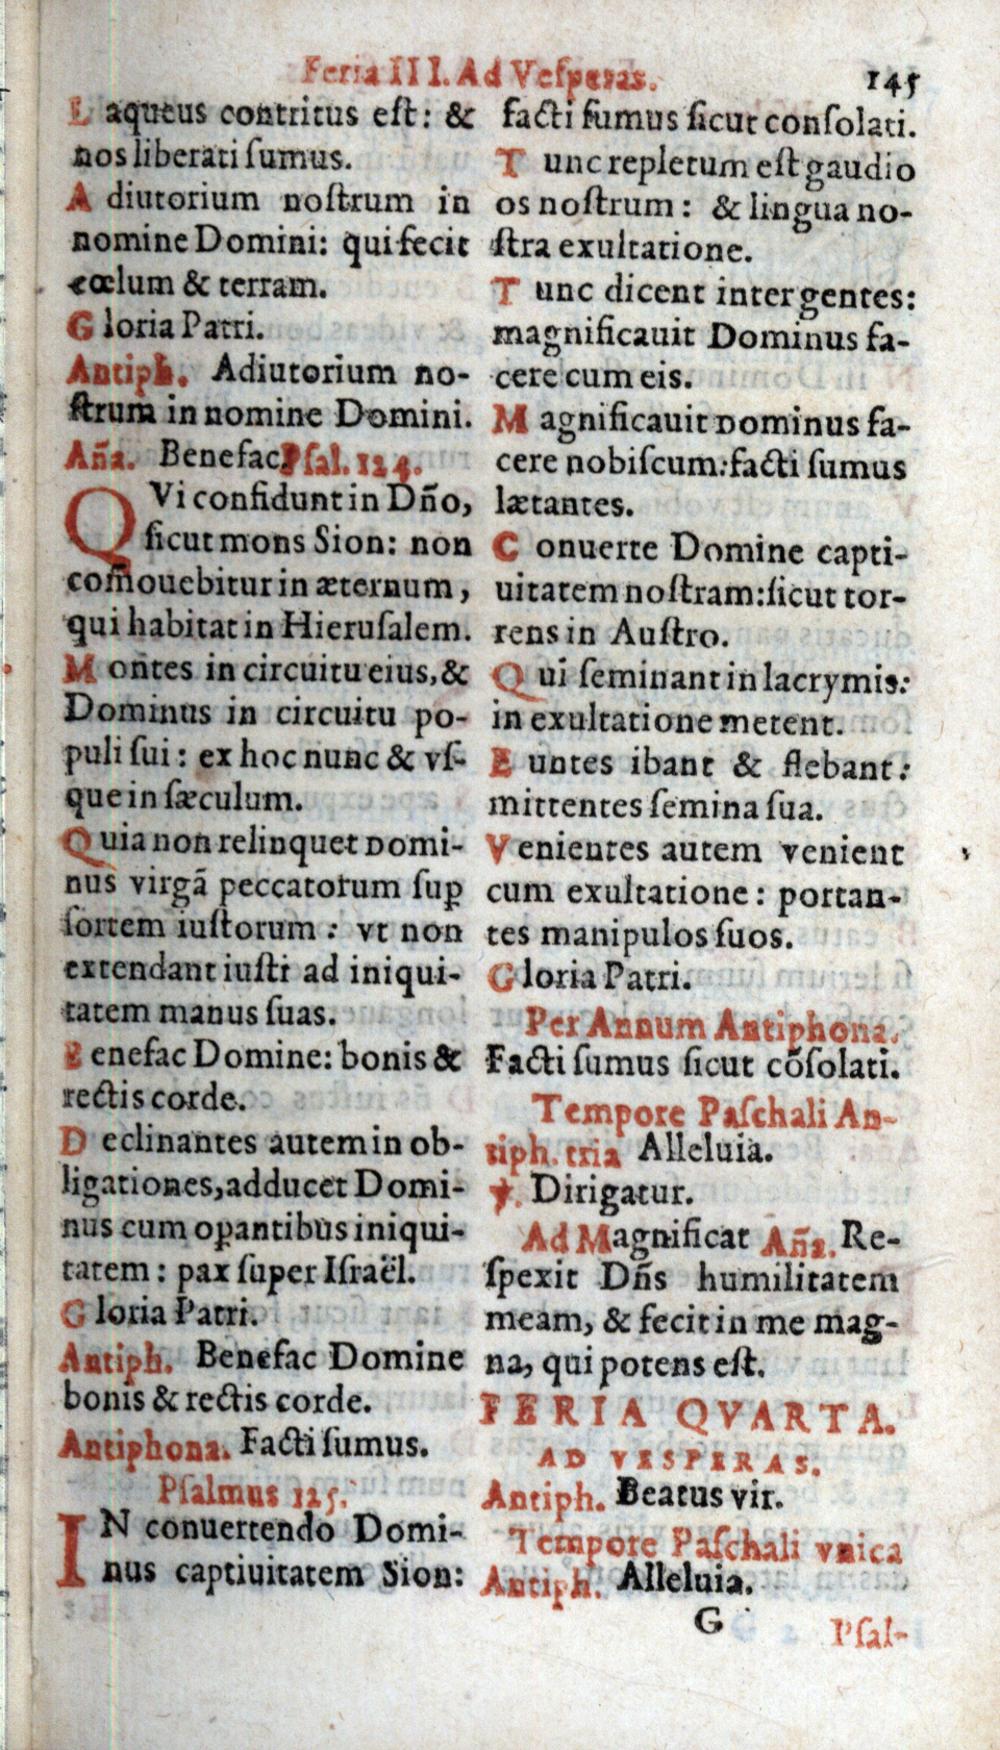 Feria III. Ad Vesperas.
145
L aqueus contritus est: &
nos liberati sumus.
A diutorium nostrum in
nomine Domini: qui fecit
cœlum & terram.
G loria Patri.
Antiph. Adiutorium no-
strum in nomine Domini.
Aña. Benefac. Psal. 124.
QVi confidunt in Dño,
sicut mons Sion: non
com̃ouebitur in æternum,
qui habitat in Hierusalem.
M ontes in circuitu eius, &
Dominus in circuitu po-
puli sui: ex hoc nunc & vs-
que in sæculum.
Quia non relinquet Domi-
nus virgã peccatorum suꝑ
sortem iustorum: vt non
extendant iusti ad iniqui-
tatem manus suas.
B enefac Domine: bonis &
rectis corde.
D eclinantes autem in ob-
ligationes, adducet Domi-
nus cum oꝑantibus iniqui-
tatem: pax super Israël.
G loria Patri.
Antiph. Benefac Domine
bonis & rectis corde.
Antiphona. Facti sumus.
Psalmus 125.
IN conuertendo Domi-
nus captiuitatem Sion:
facti sumus sicut consolati.
T unc repletum est gaudio
os nostrum: & lingua no-
stra exultatione.
T unc dicent inter gentes:
magnificauit Dominus fa-
cere cum eis.
M agnificauit Dominus fa-
cere nobiscum: facti sumus
lætantes.
C onuerte Domine capti-
uitatem nostram: sicut tor-
rens in Austro.
Q ui seminant in lacrymis:
in exultatione metent.
E untes ibant & flebant:
mittentes semina sua.
V enientes autem venient
cum exultatione: portan-
tes manipulos suos.
G loria Patri.
Per Annum Antiphona.
Facti sumus sicut cõsolati.
Tempore Paschali An-
tiph. tria Alleluia.
℣. Dirigatur.
Ad Magnificat Aña. Re-
spexit Dñs humilitatem
meam, & fecit in me mag-
na, qui potens est.
FERIA QVARTA.
AD VESPERAS.
Antiph. Beatus vir.
Tempore Paschali vnica
Antiph. Alleluia.
G
Psal-